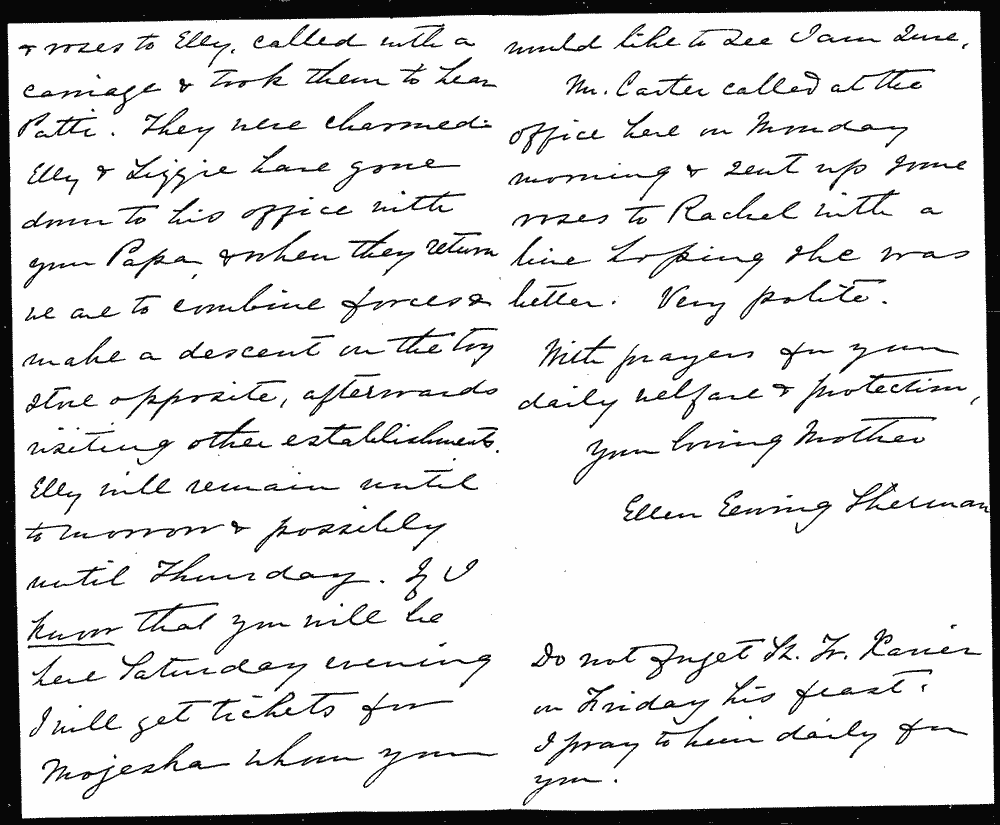 & roses to Elly, called with a
carriage & took them to hear
Patti. They were charmed.
Elly & Lizzie have gone
down to his office with
your Papa, & when they return
we are to combine forces &
make a descent on the toy
store opposite, afterwards
visiting other establishments.
Elly will remain until
tomorrow & possibly
until Thursday. If I
know that you will be
here Saturday evening
I will get tickets for
Mojeska whom you
would like to see I am sure.
Mr. Carter called at the
office here on Monday
morning & sent up some
roses to Rachel with a
line hoping she was
better. Very polite.
With prayers for your
daily welfare & protection,
Your loving Mother
Ellen Ewing Sherman
Do not forget St. Fr. Xavier
on Friday his feast.
I pray to him daily for
you.